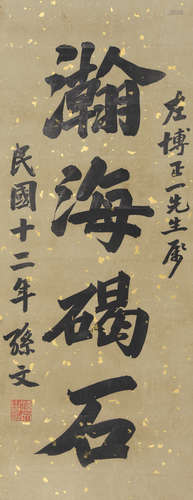 左博正一先生屬
瀚海碣石
民國十二年孫文